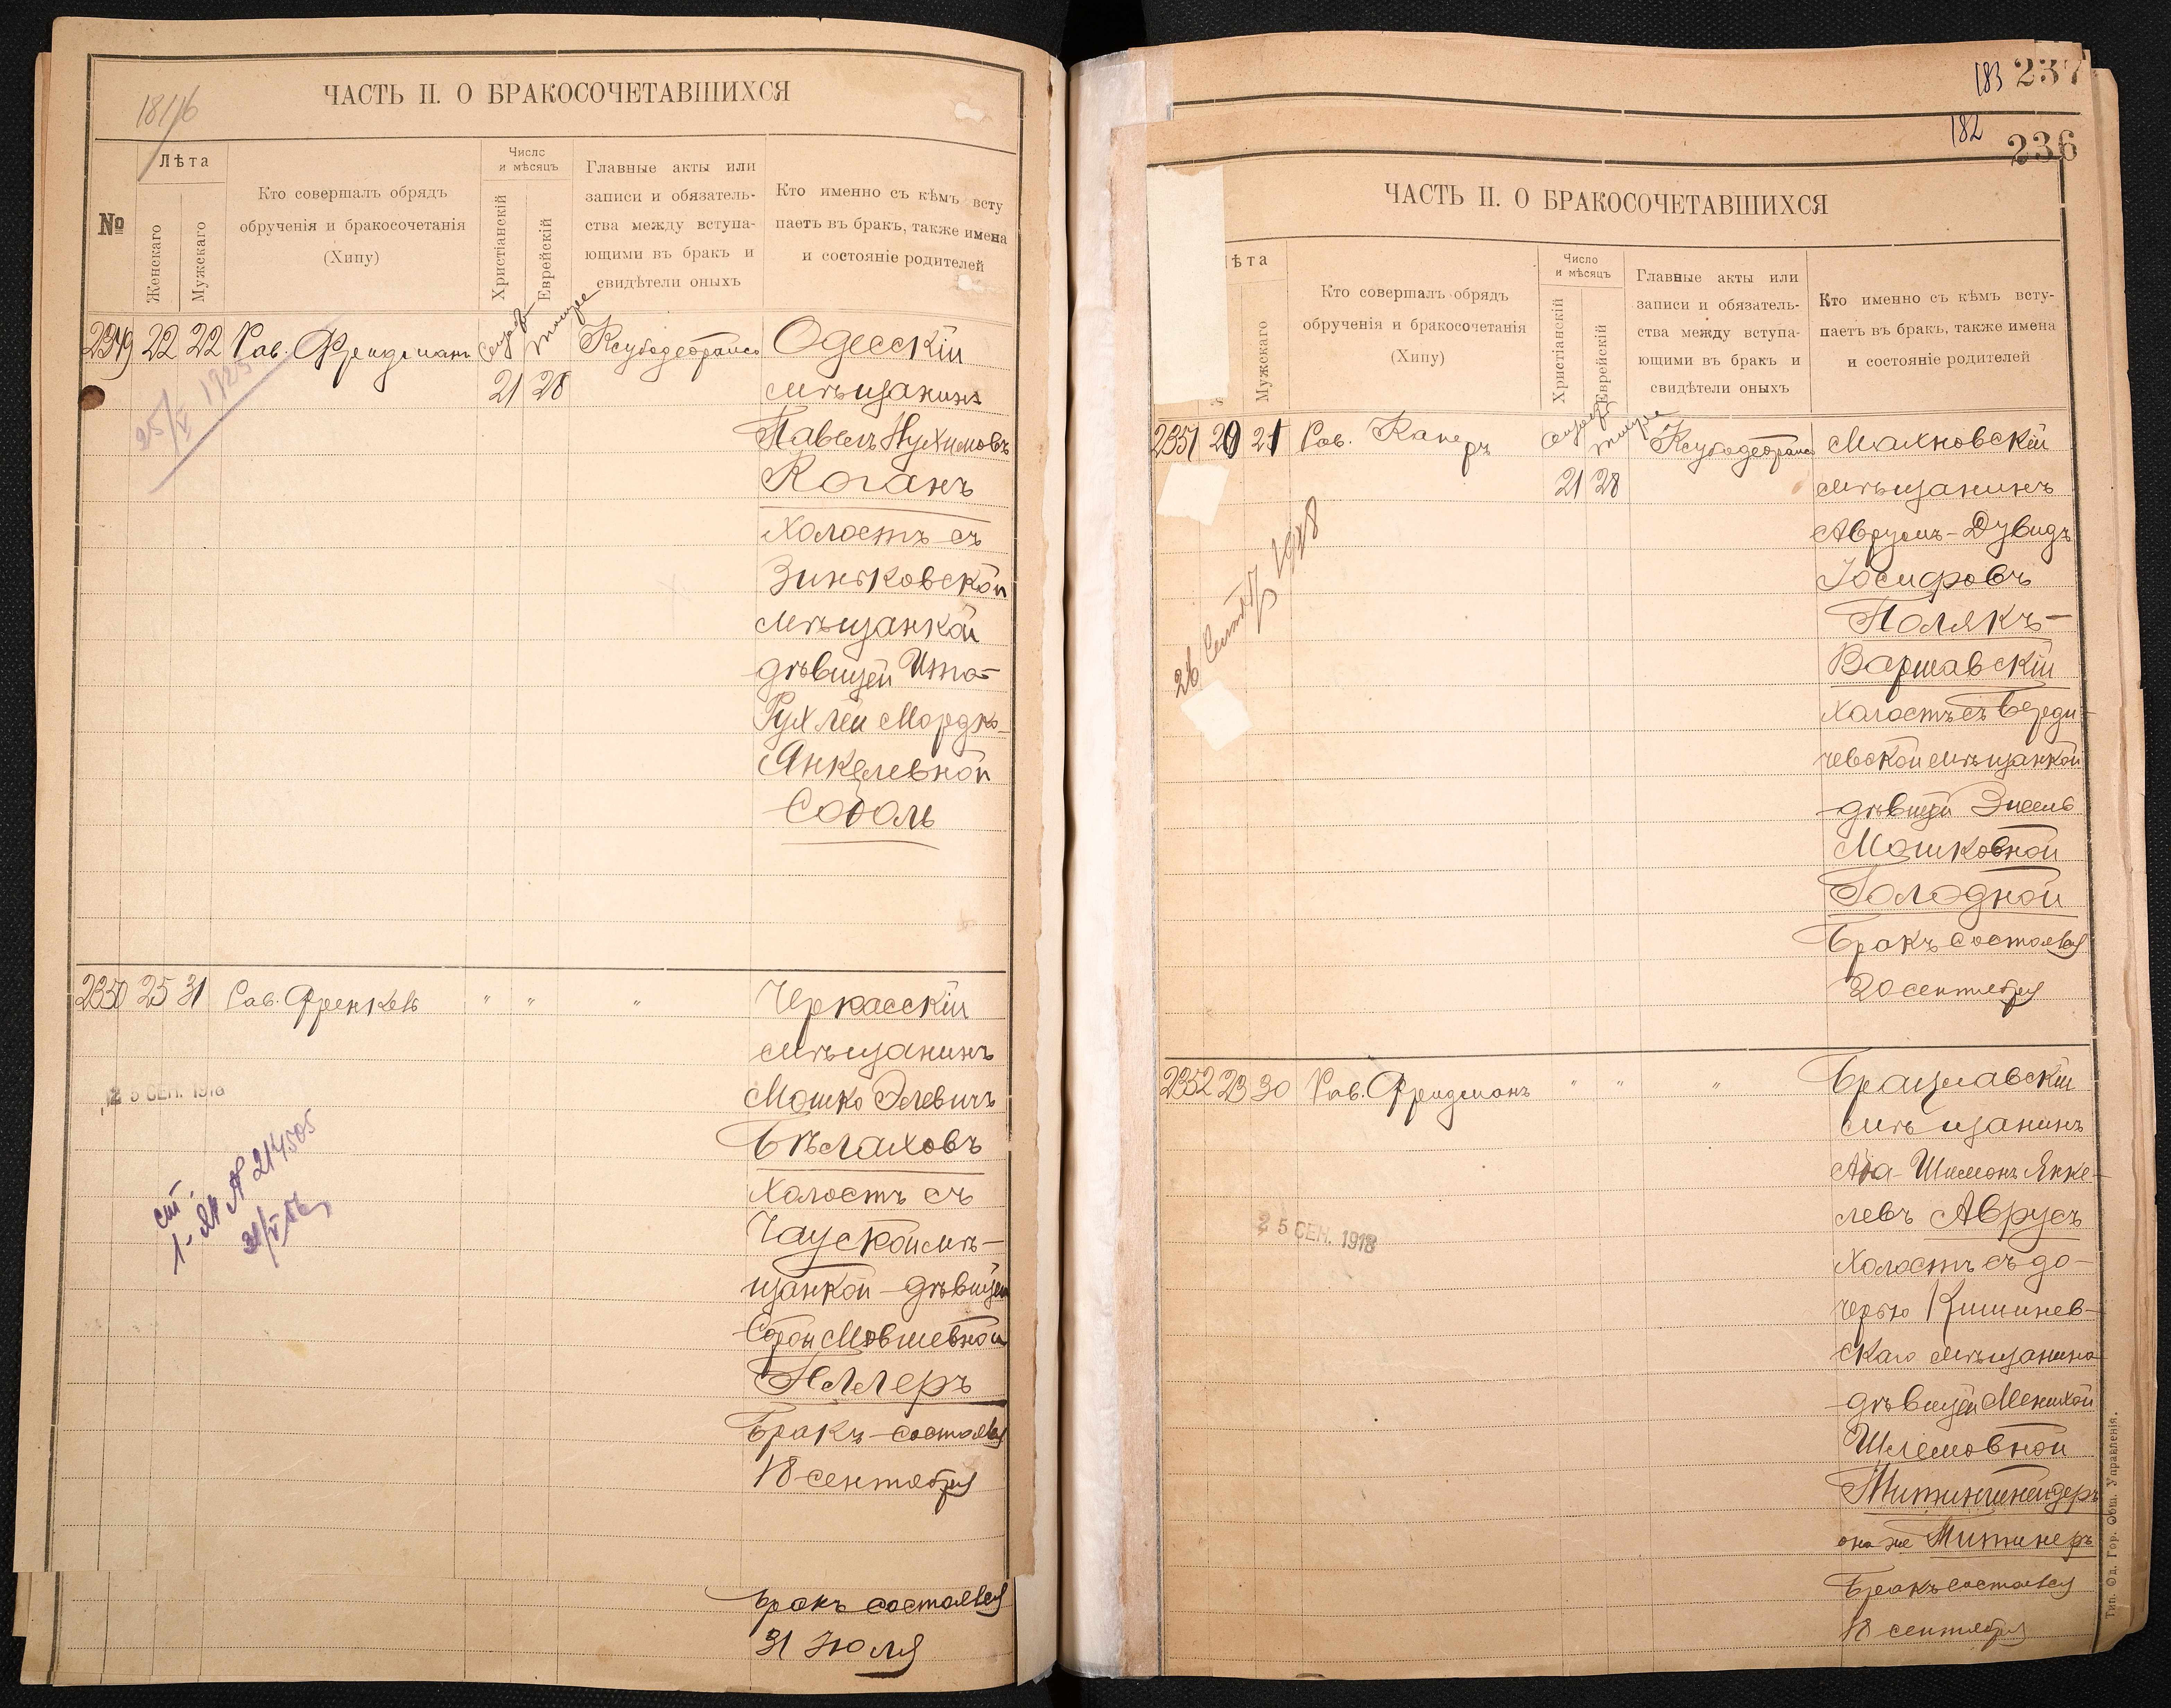 ЧАСТЬ II. О БРАКОСОЧЕТАВШИХСЯ
№
Лѣта
Женскаго
Мужскаго
Кто совершалъ обрядъ
обрученія и бракосочетанія
(Хипу)
Число
и мѣсяцъ
Христіанскій
Еврейскій
Главные акты или
записи и обязатель-
ства между вступа-
ющими въ бракъ и
свидѣтели оныхъ
Кто именно съ кѣмъ всту
паетъ въ бракъ, также имена
и состояніе родителей
2349 22 22 Рав. Фридманъ
21 28
Одесскій
мѣщанинъ
Павелъ Нухимовъ
Коганъ
холостъ съ
Зиньковской
мѣщанкой
дѣвицей Ита-
Рухлей Мордко-
Янкелевной
Соболь
25/V 1923
2350 25 31 Рав. Френкель " " "
Черкасскій
мѣщанинъ
Мошко Элевичъ
Бѣлаховъ
холостъ съ
Чауской мѣ-
щанкой - дѣвицей
Сорой Мовшевной
Бракъ состоялся
18 сентября
25 СЕН. 1918
бракъ состоялся
31 Июля
183 237
182
236
ЧАСТЬ II. О БРАКОСОЧЕТАВШИХСЯ
ѣта
Мужскаго
Кто совершалъ обрядъ
обрученія и бракосочетанія
(Хипу)
Число
и мѣсяцъ
Христіанскій
Еврейскій
Главные акты или
записи и обязатель-
ства между вступа-
ющими въ бракъ и
свидѣтели оныхъ
Кто именно съ кѣмъ всту-
паетъ въ бракъ, также имена
и состояніе родителей
2351 20 21 Рав. Канеръ
21 28
Махновскій
мѣщанинъ
Аврумъ-Дувидъ
Іосифовъ
Полякъ-
Варшавскій
холостъ съ Берди-
чевской мѣщанкой
дѣвицей
Мошковной
Голодной
Бракъ состоялся
20 сентября
2352 23 30 Рав. Фридманъ " " "
Брацлавскій
мѣщанинъ
Аба-Шимонъ Янке-
левъ Аврусъ
холостъ съ до-
черью Кишинев-
скаго мѣщанина
дѣвицей Менихой
Шлемовной
она же Митинеръ
Бракъ состоялся
18 сентября
25 СЕН. 1918
Тип. Од. Гор. Общ. Управленія.